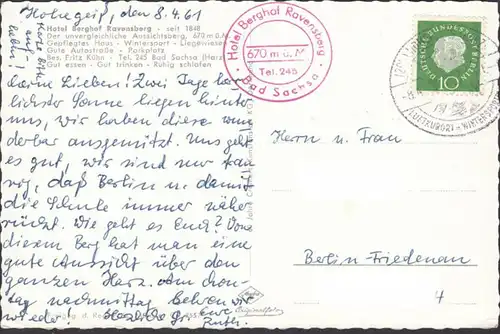 Hohegeiß, den 8.4.61
Hotel Berghof Ravensberg - seit 1848
Der unvergleichliche Aussichtsberg, 670 m ü.M.
Gepflegtes Haus - Wintersport - Liegewiese
Gute Autostraße - Parkplatz
Bes. Fritz Kühn - Tel. 245 Bad Sachsa (Harz)
Gut essen - Gut trinken - Ruhig schlafen
Hotel Berghof Ravensberg
670 m ü. M.
Tel. 245
Bad Sachsa
DEUTSCHE BUNDESPOST
10
Lieben! Zwei Tage herr-
licher Sonne liegen hinter
uns, wo wir diese wun
derbar ausgenützt. Uns geht
es gut, wir sind nur trau
rig, daß Berlin u. damit
die Schule immer näher
rückt. Wie geht es Euch? Von
diesem Berg hat man eine
gute Aussicht über den
ganzen Harz. Am Mon-
tag nachmittag kehren wir
wieder! Herzliche Gr. Eure
Ruth.
Herrn u. Frau
Berlin-Friedenau
4